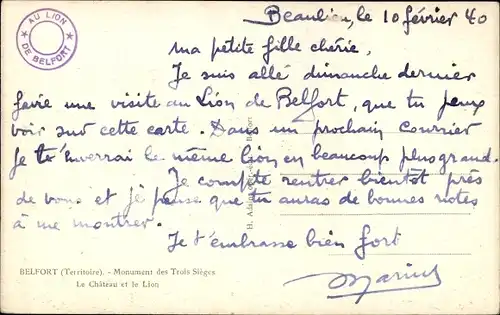 AU LION
DE BELFORT
Beaulieu, le 10 février 40
ma petite fille chérie,
Je suis allé dimanche dernier
faire une visite au Lion de Belfort, que tu peux
voir sur cette carte. Dans un prochain courrier
Je t'enverrai le même lion en beaucoup plus grand.
Je compte rentrer bientôt près
de vous et je pense que tu auras de bonnes notes
à me montrer.
Je t'embrasse bien fort
Marius
BELFORT (Territoire). - Monument des Trois Sièges
Le Château et le Lion